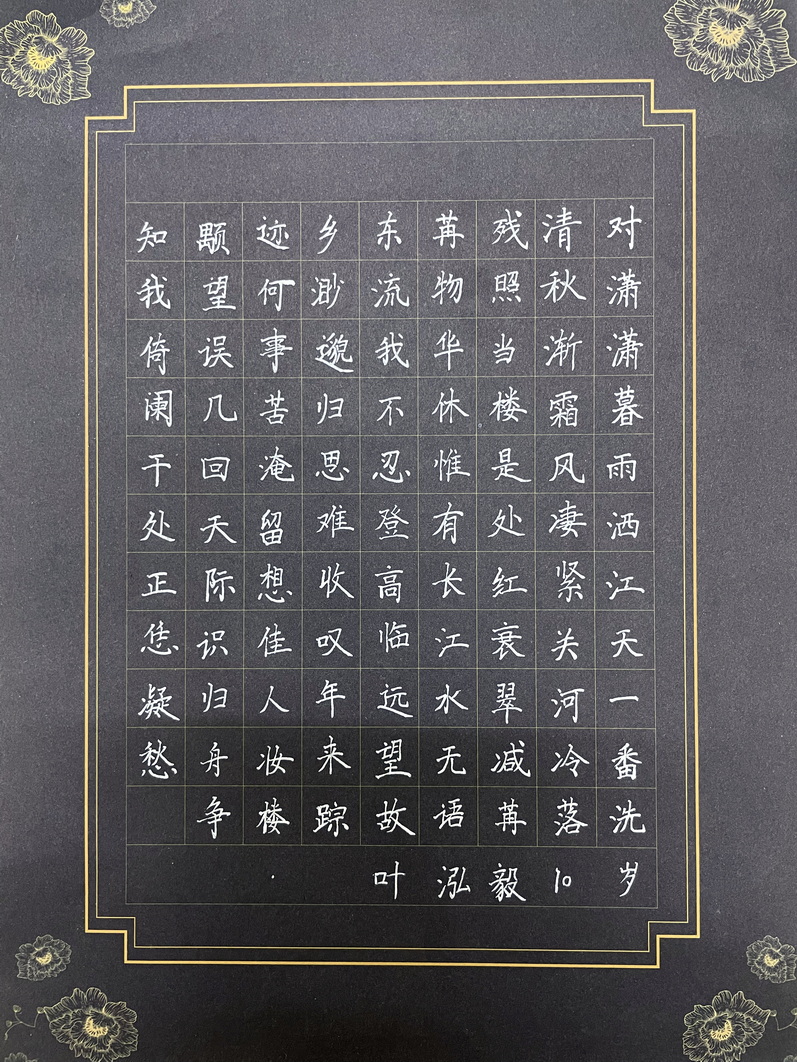 对潇潇暮雨洒江天一番洗
清秋渐霜风凄紧关河冷落
残照当楼是处红衰翠减苒
苒物华休惟有长江水无语
东流我不忍登高临远望故
乡渺邈归思难收叹年来踪
迹何事苦淹留想佳人妆楼
颙望误几回天际识归舟争
知我倚阑干处正恁凝愁
叶泓毅10岁